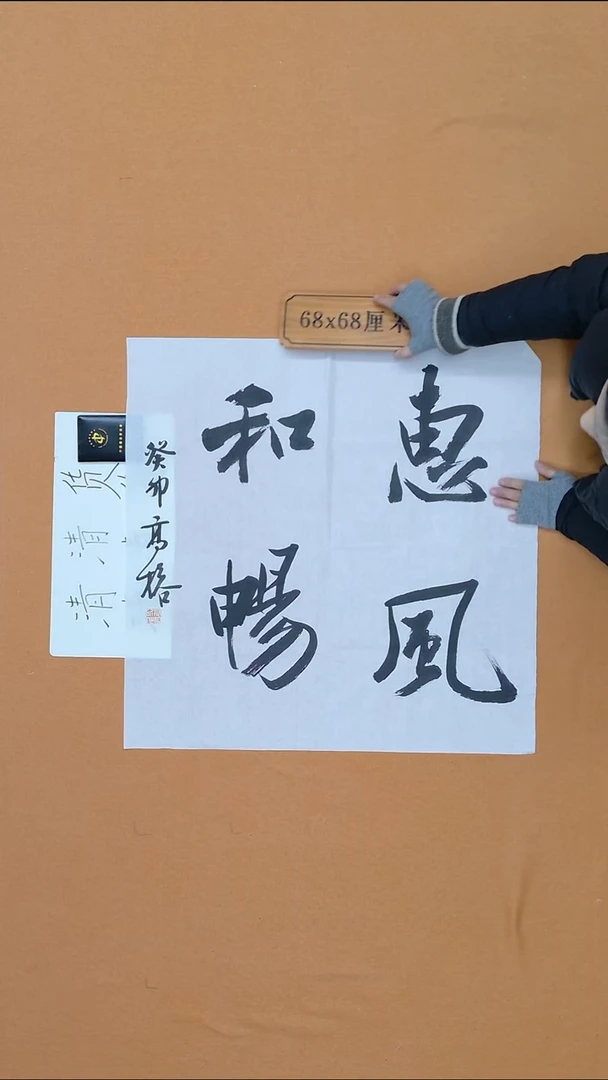 68x68厘米
惠風
和暢
癸卯高
清清